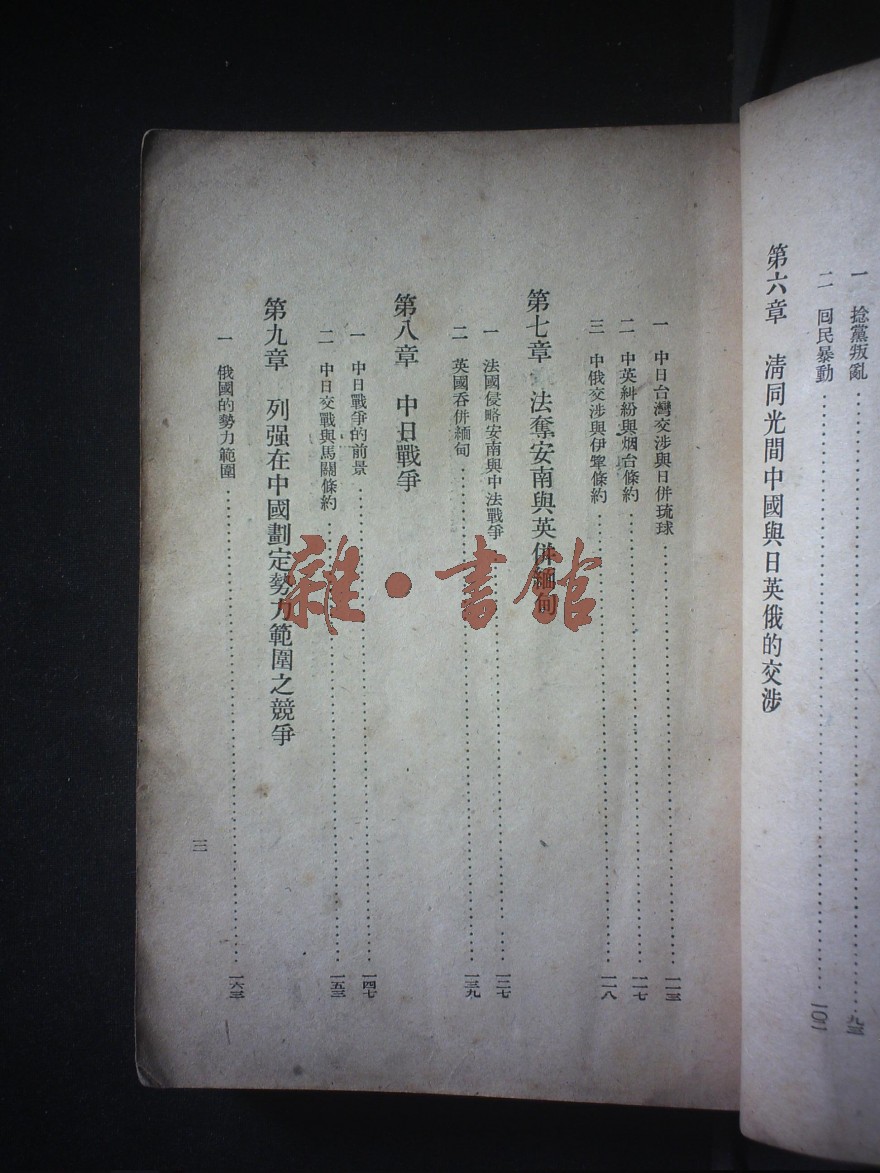 一　捻黨叛亂……九三
二　囘民暴動……一〇二
第六章　淸同光間中國與日英俄的交涉
一　中日台灣交涉與日併琉球……一一三
二　中英糾紛與烟台條約……一一七
三　中俄交涉與伊犂條約……一一八
第七章　法奪安南與英併緬甸
一　法國侵略安南與中法戰爭……一二七
二　英國吞併緬甸……一三九
第八章　中日戰爭
一　中日戰爭的前景……一四七
二　中日交戰與馬關條約……一五三
第九章　列强在中國劃定勢力範圍之競爭
一　俄國的勢力範圍……一六三
三
雜·書館